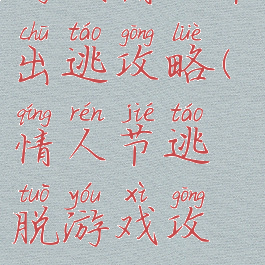 chū táo gōng lüè
出逃攻略(
qíng rén jié táo
情人节逃
tuō yóu xì gōng
脱游戏攻